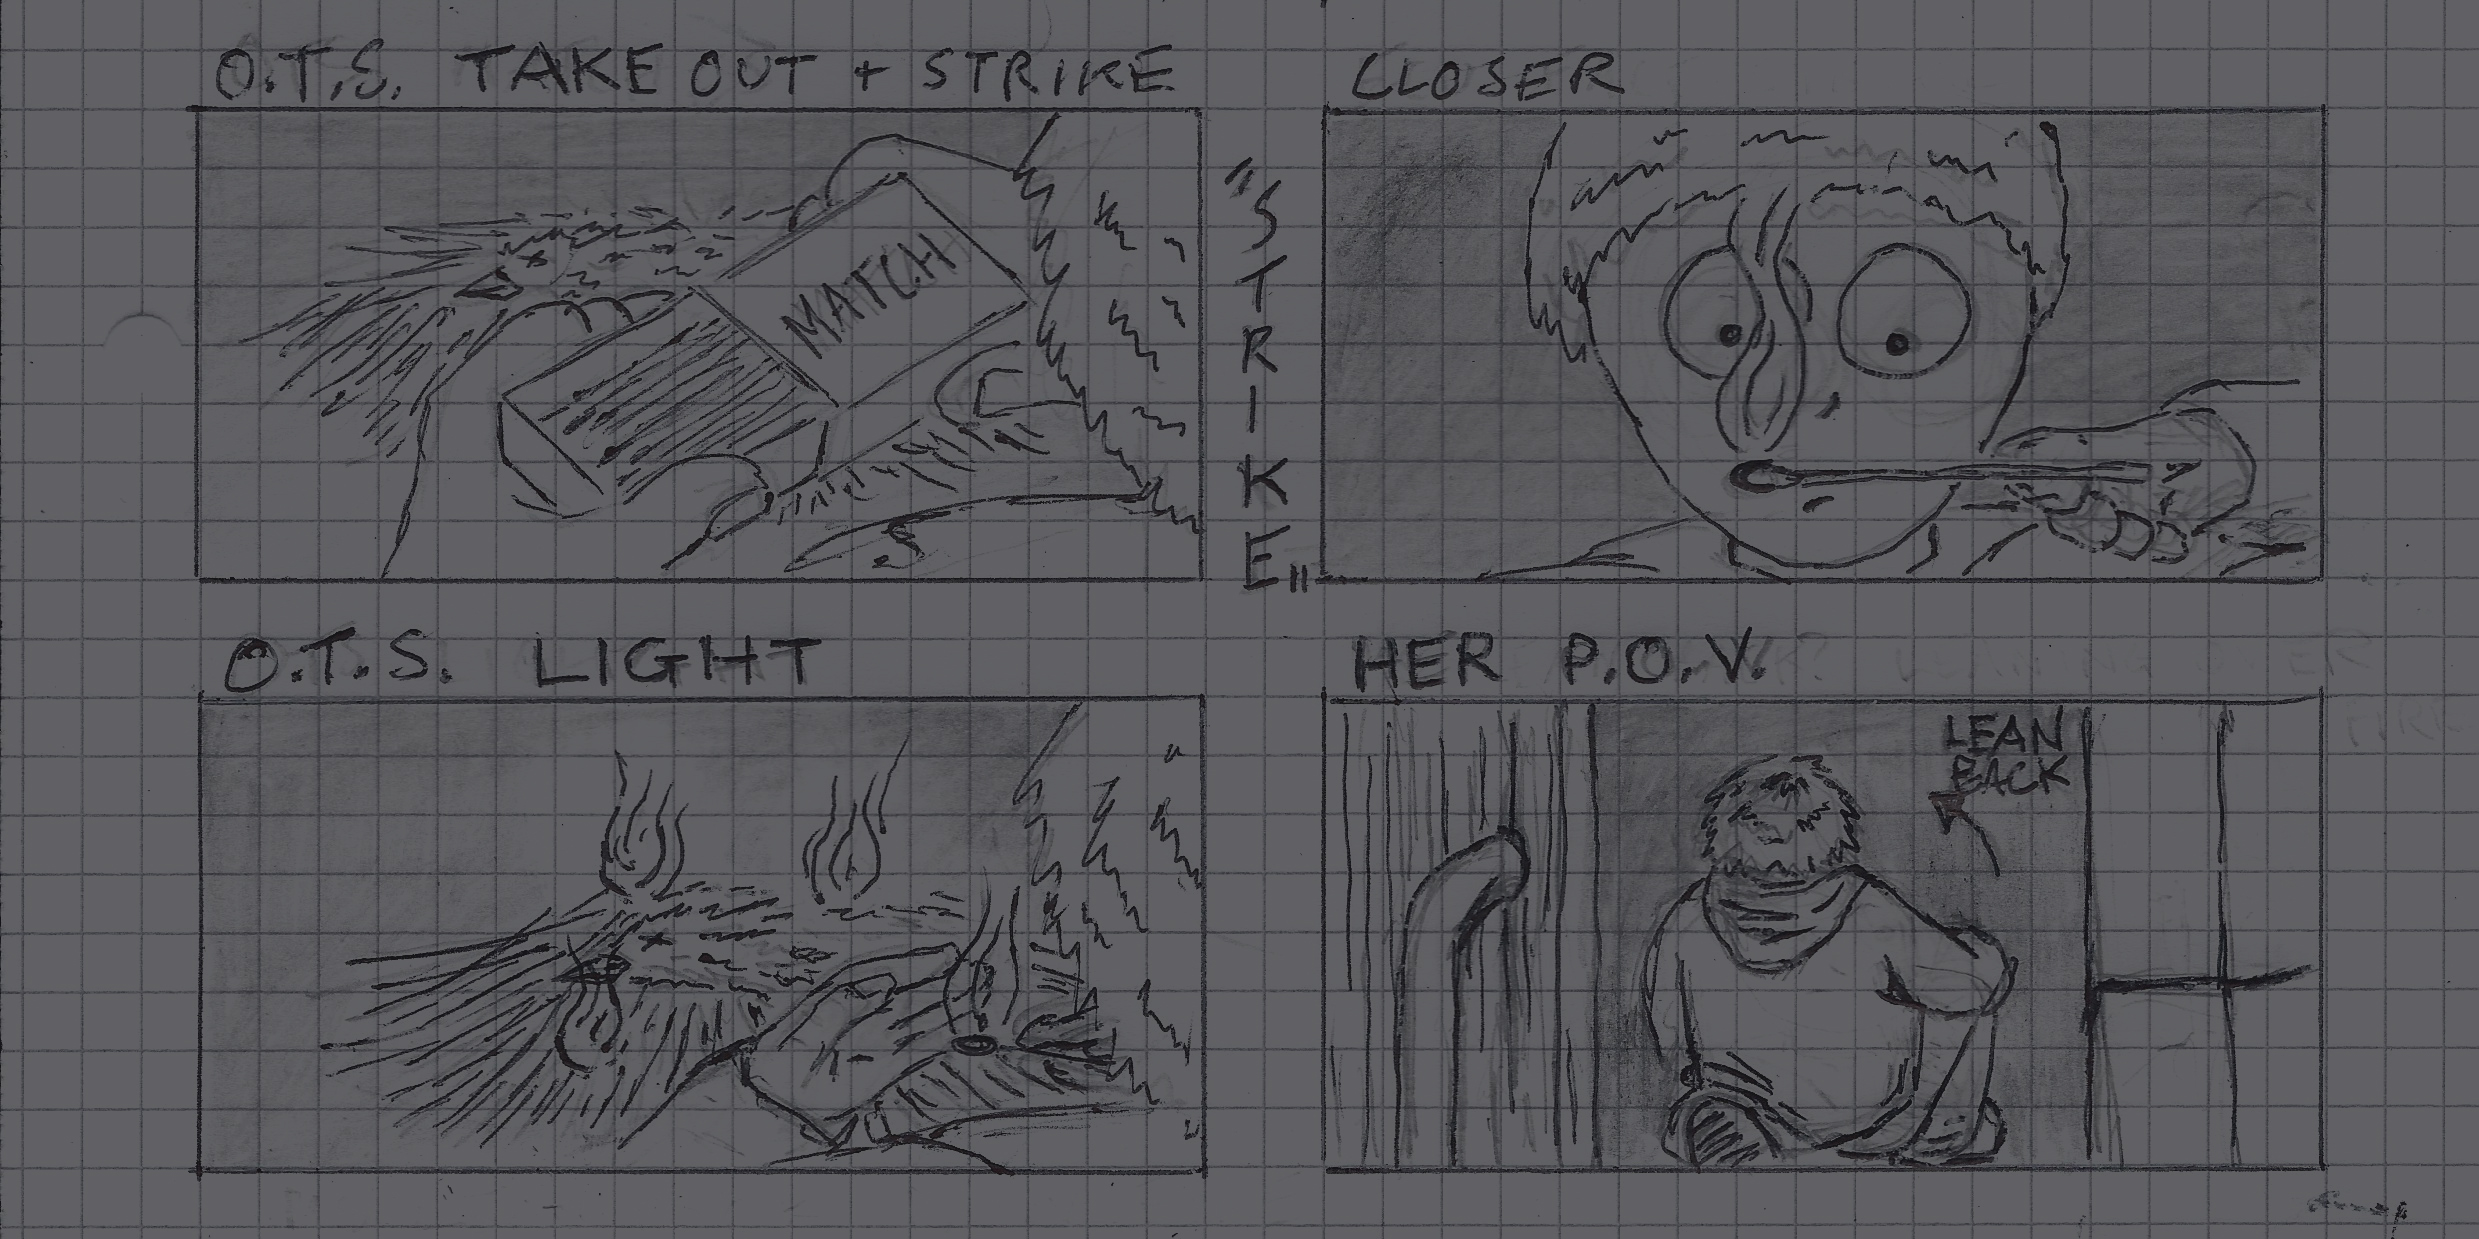 O.T.S. TAKE OUT + STRIKE
MATCH
"STRIKE"
CLOSER
O.T.S. LIGHT
HER P.O.V.
LEAN
BACK